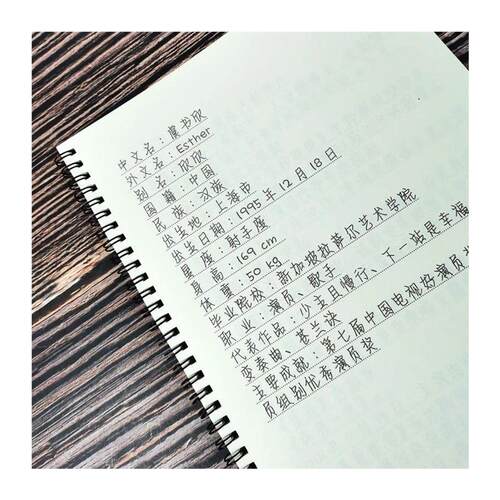 中文名：虞书欣
外文名：Esther
别名：欣欣
国籍：中国
民族：汉族
出生地：上海市
出生日期：1995年12月18日
星座：射手座
身高：169cm
体重：50kg
毕业院校：新加坡拉萨尔艺术学院
职业：演员、歌手
代表作品：少主且慢行、下一站是幸福
变奏曲、苍兰诀
主要成就：第七届中国电视好演员
员组别优秀演员奖